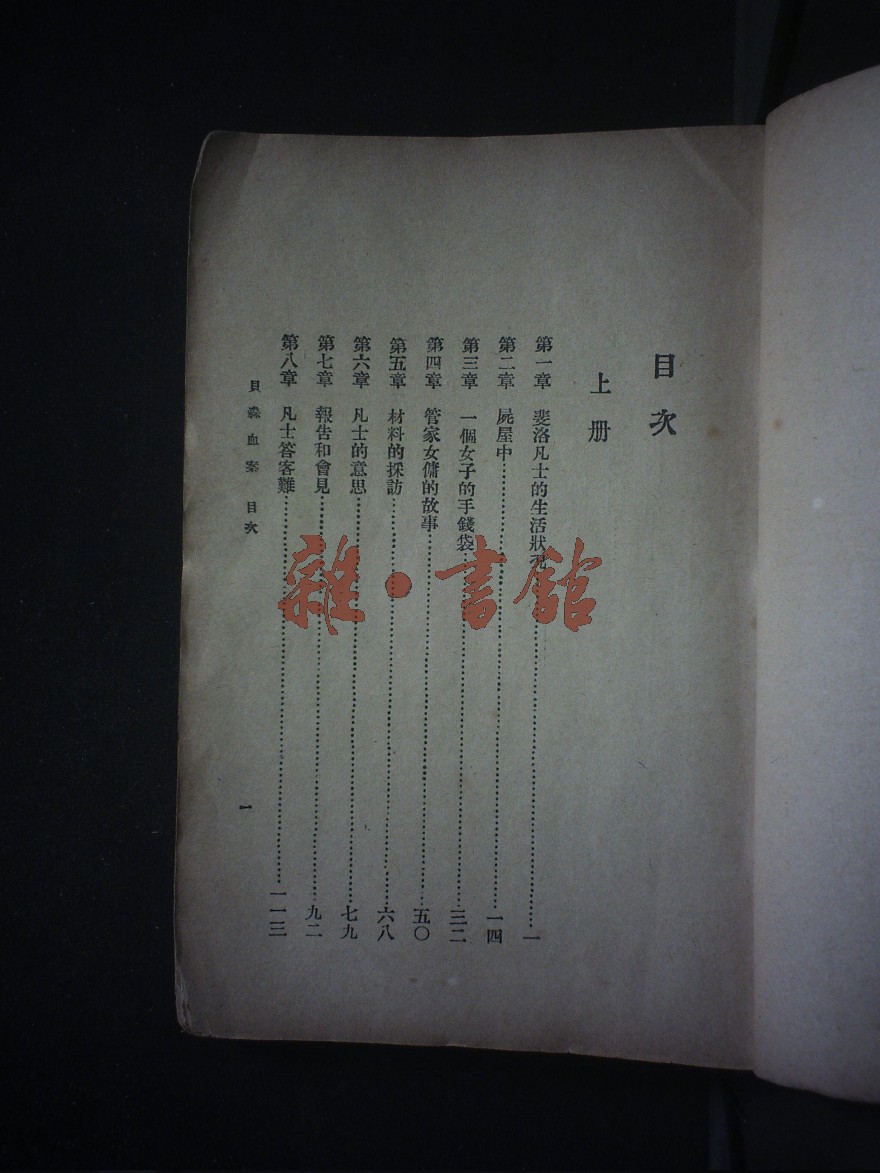 目次
上册
第一章 斐洛凡士的生活狀況……一
第二章 屍屋中……一四
第三章 一個女子的手錢袋……三二
第四章 管家女傭的故事……五〇
第五章 材料的採訪……六八
第六章 凡士的意思……七九
第七章 報告和會見……九二
第八章 凡士答客難……一一三
貝森血案 目次
一
雜·書館